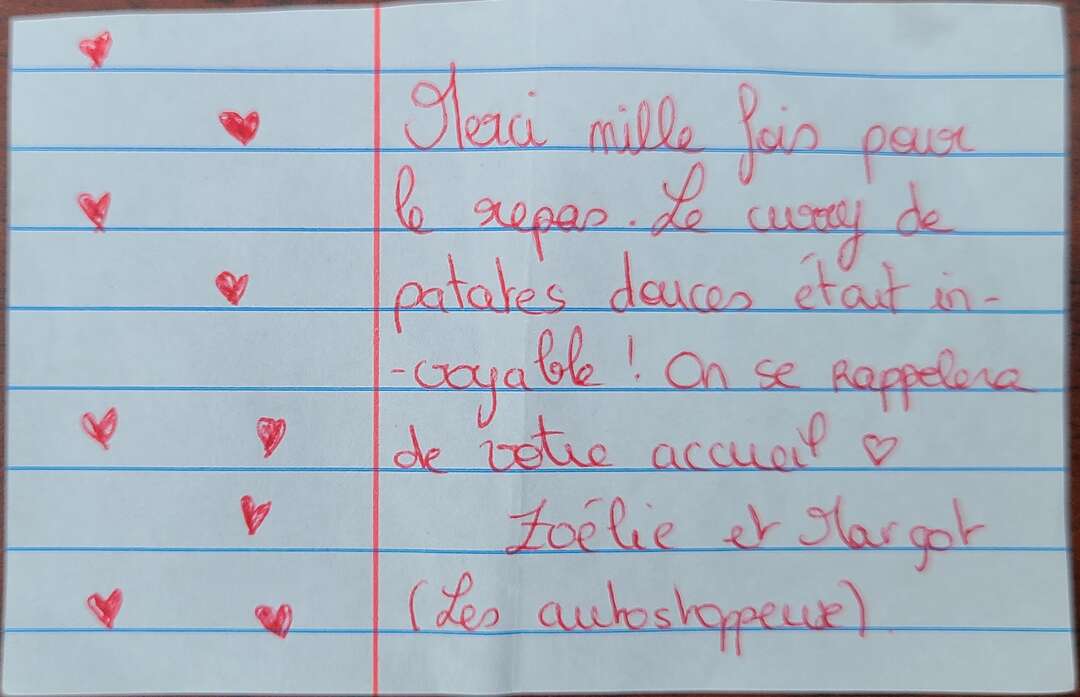 Merci mille fois pour
le repas. Le curry de
patates douces était in-
-croyable ! On se rappelera
de votre accueil ♡
Zoélie et Margot
(Les autostoppeux)